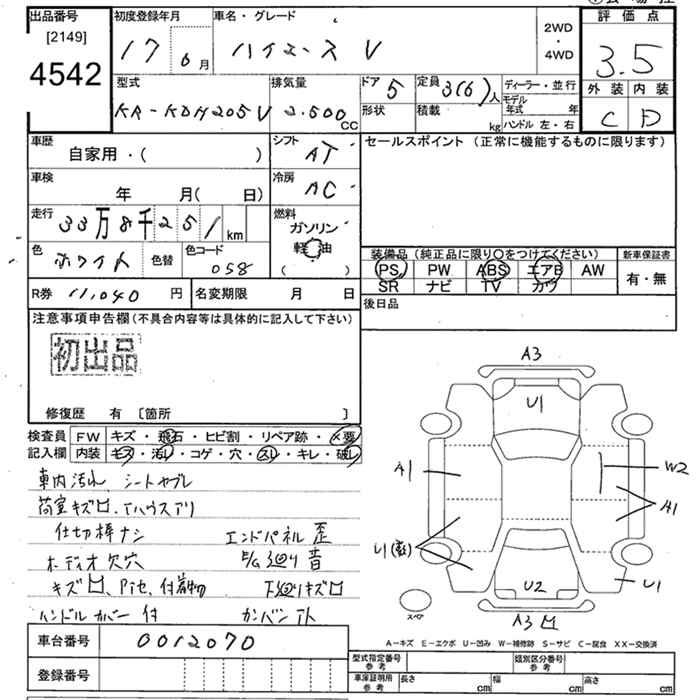 出品番号 初度登録年月 車名・グレード 2WD・4WD 評価点
[2149]
4542 17 6月 ハイエースV 3.5
型式 排気量 ドア 5 定員 3(6)人 ディーラー・並行 外装 内装
KR-KDH205V 2.500cc 形状 積載 kg モデル年式 年 C D
ハンドル 左・右
車歴 自家用・( ) シフト AT セールスポイント (正常に機能するものに限ります)
車検 年 月( 日) 冷房 AC
走行 33万8千251km 燃料 ガソリン 軽油 ( )
色 ホワイト 色替 色コード 058 装備品 (純正品に限り○をつけてください) 新車保証書
PS PW ABS エアB AW 有・無
SR ナビ TV カワ
R券 11,040円 名変期限 月 日 後日品
注意事項申告欄 (不具合内容等は具体的に記入して下さい)
初出品
修復歴 有 [箇所 ]
検査員 FW キズ・飛石・ヒビ割・リペア跡・X要
記入欄 内装 キズ・汚れ・コゲ・穴・スレ・キレ・破レ
A3
U1
A1 W2
A1
U1
U1
U2
A3
スペア
車内汚れ シートヤブレ
荷室キズ凹
仕切棒ナシ エンドパネル歪
オーディオ欠穴 E/G廻り音
キズ凹、ビセ、付着物 下廻りキズ凹
ハンドルカバー付 カンバン
A-キズ E-エクボ U-凹み W-補修跡 S-サビ C-腐食 XX-交換済
車台番号 0012070
登録番号
型式指定番号 参考 類別区分番号 参考
車庫証明用 参考 長さ cm 幅 cm 高さ cm